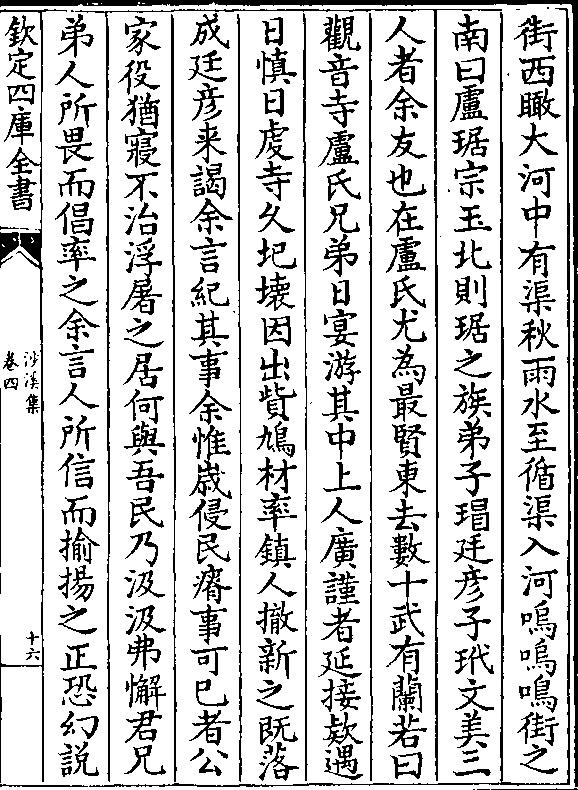 街西瞰大河中有渠秋雨水至循渠入河嗚嗚鳴街之
南曰盧琚宗玉北則琚之族弟子瑁廷彦子玳文美三
人者余友也在盧氏尤為最賢東去數十武有蘭若曰
觀音寺盧氏兄弟日宴游其中上人廣謹者延接欵遇
日慎日䖍寺久圯壊因出貲鳩材率鎮人撤新之既落
成廷彦来謁余言紀其事余惟嵗侵民瘠事可已者公
家役猶寢不治浮屠之居何與吾民乃汲汲弗懈君兄
弟人所畏而倡率之余言人所信而揄揚之正恐幻説
欽定四庫全書
沙溪集
卷四
十六